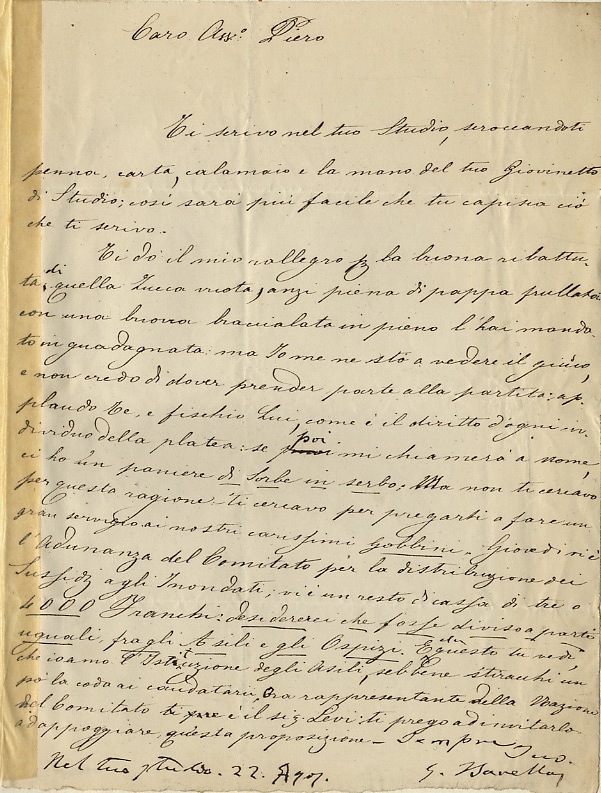 Caro Avv.o Piero
Ti scrivo nel tuo Studio, scroccandoti
penna, carta, calamaio e la mano del tuo Giovinetto
di Studio; così sarà più facile che tu capisca ciò
che ti scrivo.
Ti dò il mio rallegro p la buona ribattu-
ta di quella Zucca vuota, anzi piena di pappa
con una buona bracciata in pieno l'hai manda-
to in guadagnata: ma Io me ne stò a vedere il giuoco,
e non credo di dover prender parte alla partita: ap-
plaudo Te, e fischio Lui, come è il diritto d'ogni in-
dividuo della platea: se poi mi chiamerà a nome,
ci ho un paniere di Sorbe in serbo; Ma non ti cercavo
per questa ragione. Ti cercavo per pregarti a fare un
gran servigio ai nostri carissimi Gobbini. Giovedì vi è
l'Adunanza del Comitato per la distribuzione dei
Sussidj agli Inondati; vi è un resto di cassa di tre o
4000 Franchi: desidererei che fosse diviso a parti
uguali, fra gli Asili e gli Ospizi. E questo tu vedi
che io amo l'Istituzione degli Asili, sebbene stracchi un
pò la coda ai caudatarii. Ora rappresentante della Nazione
del Comitato è il sig. Levi: ti prego ad invitarlo
ad appoggiare questa proposizione – Sempre Tuo.
Nel tuo studio. 22. Ago.
G.